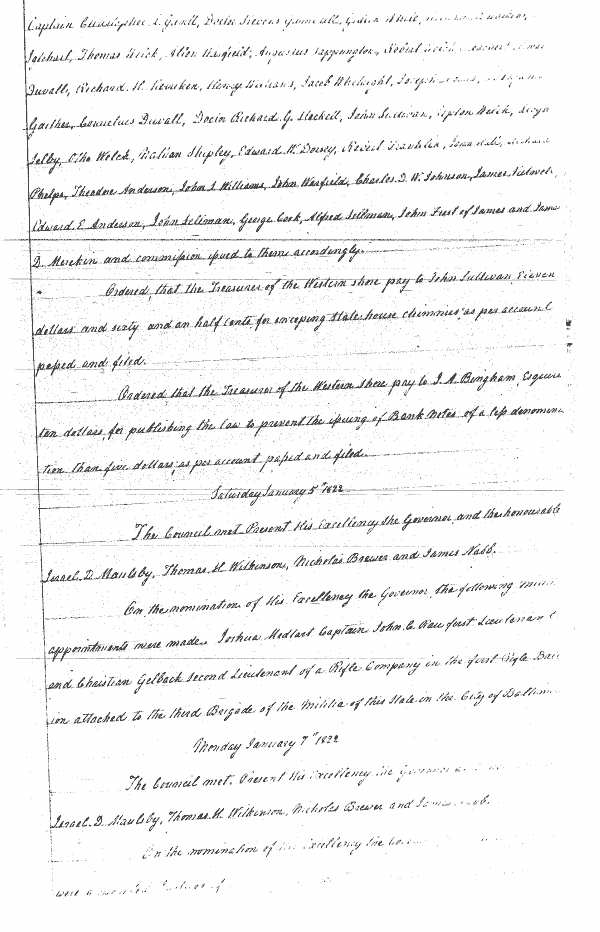 Captain
Thomas Welch, Allen Warfield, Augustus Sappington, Robert Welch
Duvall, Richard H. Henry Williams, Jacob
Gaither, Cornelius Duvall, Docin Richard G. Stockett, John Sullivan, Upton Welch,
Selby, Otho Welch, Shipley, Edward W. Dorsey, Robert Franklin,
Phelps, Theodore Anderson, John S Williams, John Warfield, Charles D. W. Johnson, James
Edward E. Anderson, John Sellman, George Cook, Alfred Sellman, John Frost of James and
D. Merekin and commission issued to them accordingly.
Ordered, that the Treasurer of the Western shore pay to John Sullivan, Eleven
dollars and sixty and an half cents for sweeping State house chimnies as per account
passed and filed.
Ordered that the Treasurer of the Western shore pay to J. A. Bingham, Esquire
ten dollars, for publishing the law to prevent the issuing of Bank Notes of a less denomina
tion than five dollars, as per account passed and filed.
Saturday January 5th 1822
The Council met Present His Excellency the Governor and the honourable
Israel D. Maulsby, Thomas H. Wilkinson, Nicholas Brewer and James Nabb.
On the nomination of His Excellency the Governor the following
appointments were made. Joshua Medtart Captain John C. Rau first Lieutenant
and Christian Gelback Second Lieutenant of a Rifle Company in the first Rifle
ion attached to the third Brigade of the Militia of this State in the City of
Monday January 7th 1822
The Council met. Present His Excellency the Governor
Israel D. Maulsby, Thomas H. Wilkinson, Nicholas Brewer and James
On the nomination of Excellency the
were